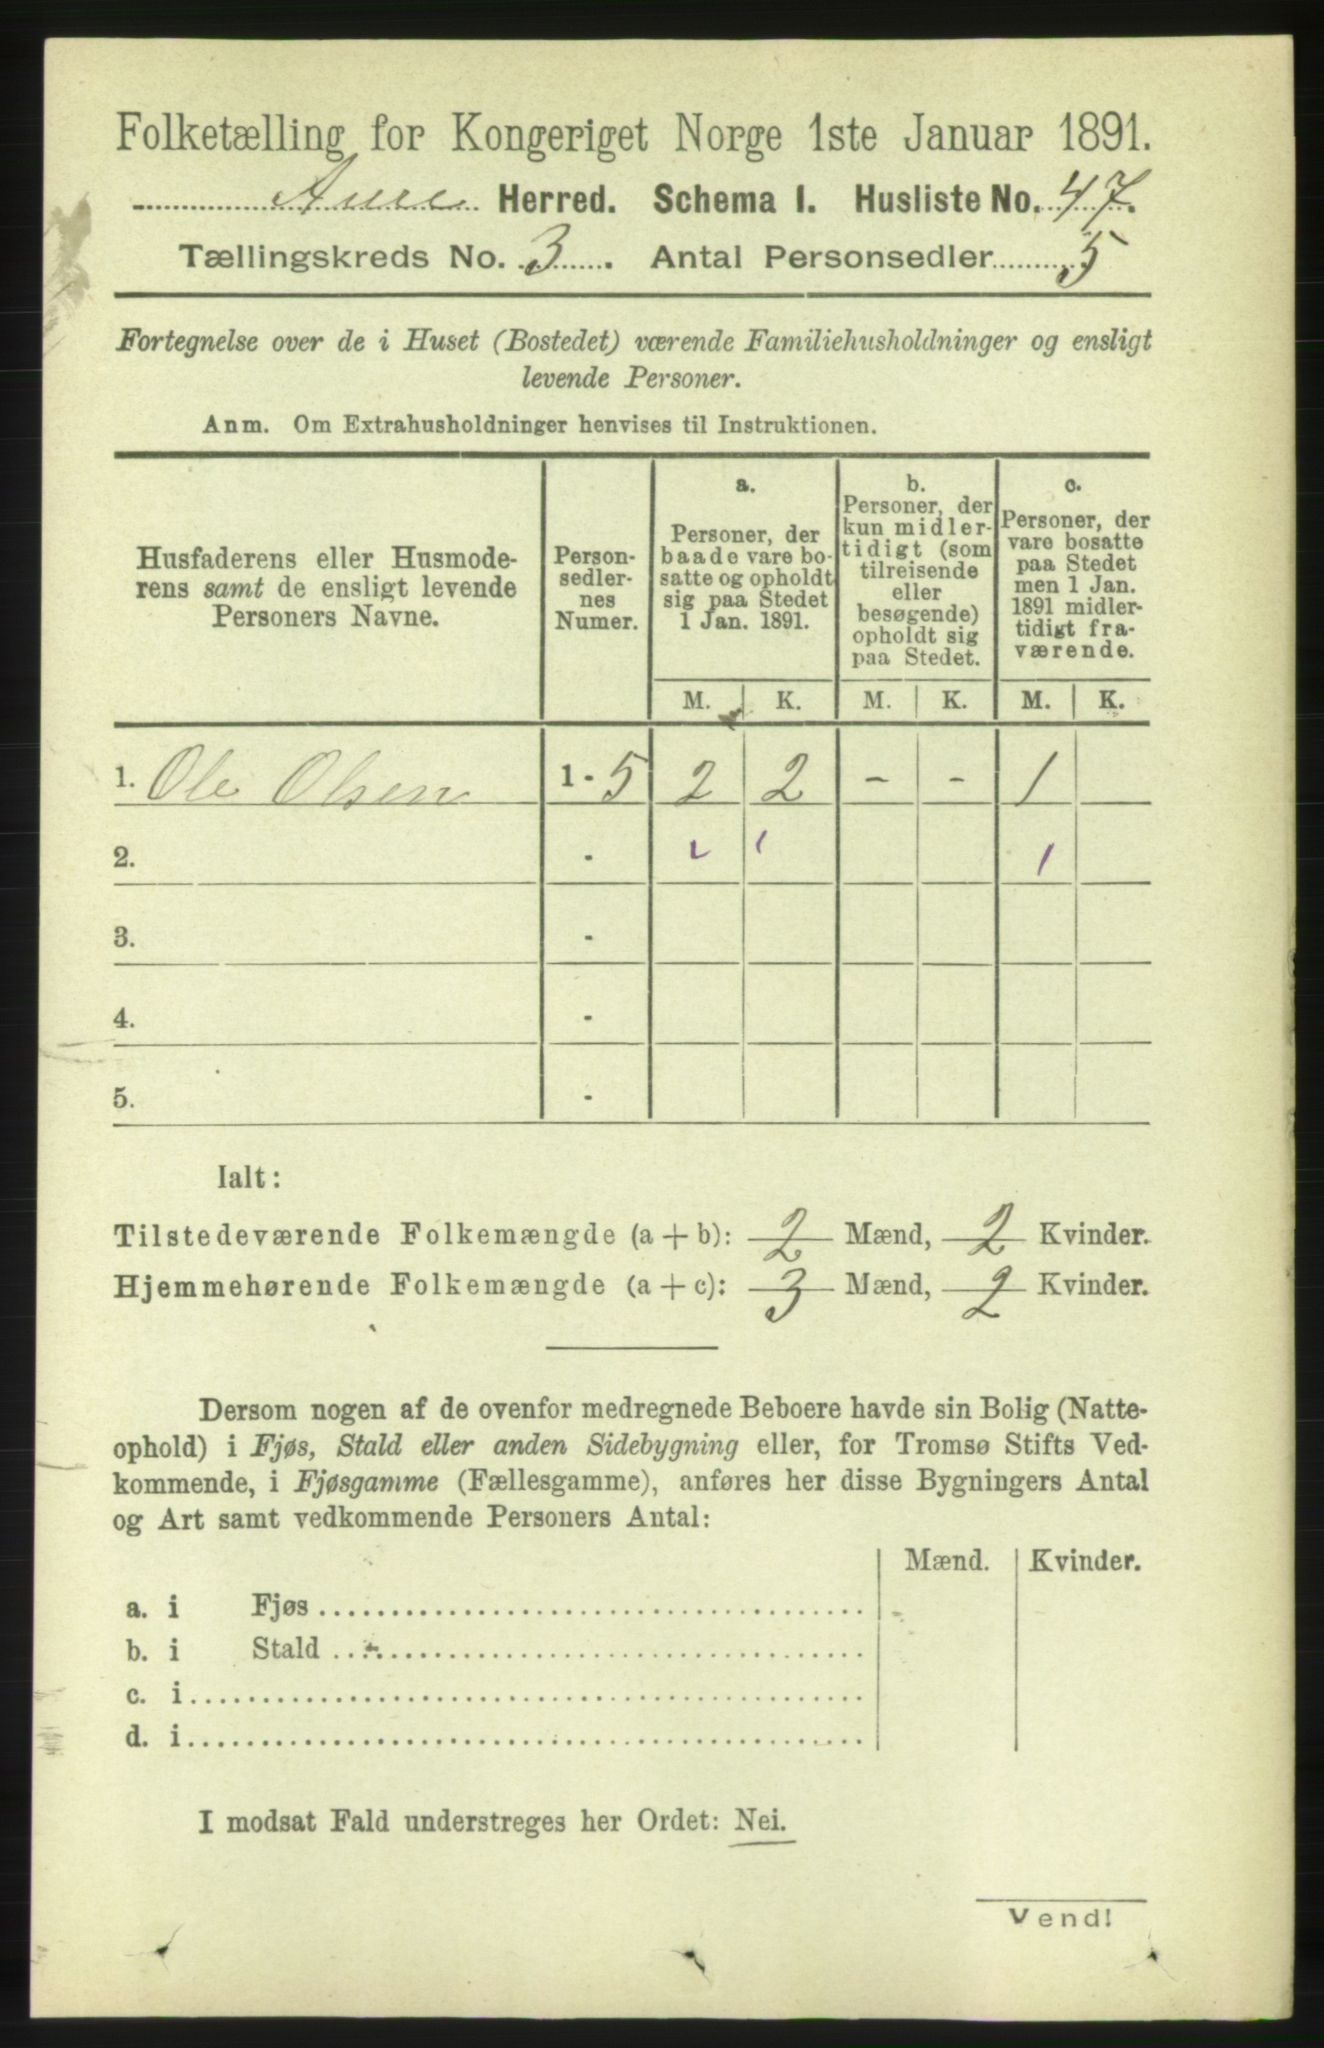 Folketælling for Kongeriget Norge 1ste Januar 1891.
Aure Herred. Schema I. Husliste No. 47.
Tællingskreds No. 3. Antal Personsedler 5
Fortegnelse over de i Huset (Bostedet) værende Familiehusholdninger og ensligt
levende Personer.
Anm. Om Extrahusholdninger henvises til Instruktionen.
Husfaderens eller Husmode-
rens samt de ensligt levende
Personers Navne.
Person-
sedler-
nes
Numer.
a.
Personer, der
baade vare bo-
satte og opholdt
sig paa Stedet
1 Jan. 1891.
b.
Personer, der
kun midler-
tidigt (som
tilreisende
eller
besøgende)
opholdt sig
paa Stedet.
c.
Personer, der
vare bosatte
paa Stedet
men 1 Jan.
1891 midler-
tidigt fra-
værende.
M. K. M. K. M. K.
1. Ole Olsen 1 - 5 2 2 - - 1
2. - 1
3. -
4. -
5. -
Ialt:
Tilstedeværende Folkemængde (a + b): 2 Mænd, 2 Kvinder.
Hjemmehørende Folkemængde (a + c): 3 Mænd, 2 Kvinder.
Dersom nogen af de ovenfor medregnede Beboere havde sin Bolig (Natte-
ophold) i Fjøs, Stald eller anden Sidebygning eller, for Tromsø Stifts Ved-
kommende, i Fjøsgamme (Fællesgamme), anføres her disse Bygningers Antal
og Art samt vedkommende Personers Antal:
Mænd. Kvinder.
a. i Fjøs
b. i Stald
c. i
d. i
I modsat Fald understreges her Ordet: Nei.
Vend!